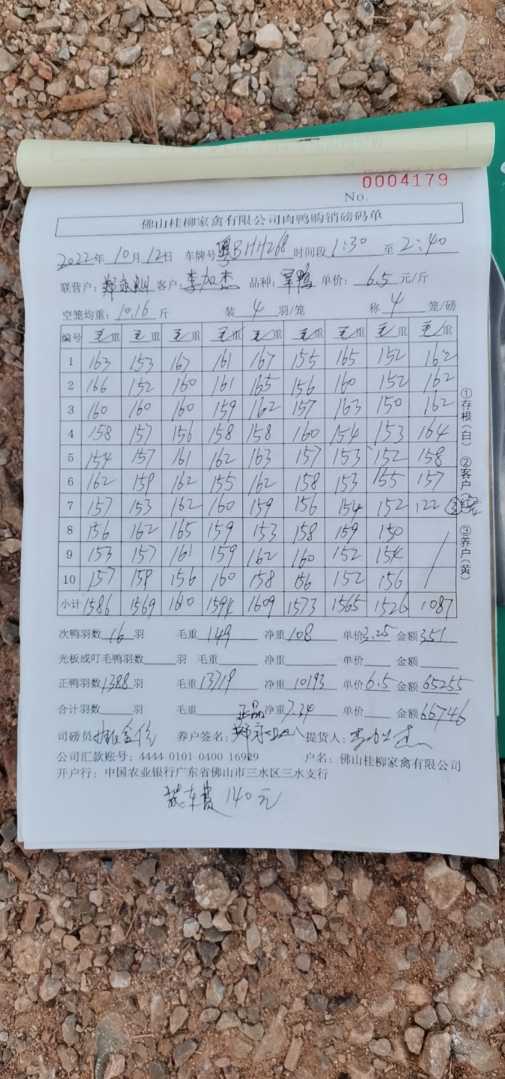 0004179
No.
佛山桂柳家禽有限公司肉鸭购销磅码单
2022年 10月 12日 车牌号 粤BHH268 时间段 1:30 至 2:40
联营户: 客户: 李加杰 品种: 单价: 6.5 元/斤
空笼均重: 10.16 斤 装 4 羽/笼 称 4 笼/磅
编号 毛重 毛重 毛重 毛重 毛重 毛重 毛重 毛重 毛重
1 163 153 167 161 167 155 165 152 162
2 166 152 160 161 165 156 160 152 162
3 160 160 160 159 162 157 163 150 162
4 158 157 156 158 158 160 154 153 164
5 154 157 161 162 163 157 153 152 158
6 162 159 162 155 162 158 153 155 157
7 157 153 162 160 159 156 154 152 122
8 156 162 165 159 153 158 159 150
9 153 157 161 159 162 160 152 154
10 157 159 156 160 158 156 152 156
小计 1586 1569 1610 1594 1609 1573 1565 1526 1087
①存根(白) ②客户 ③养户(黄)
次鸭羽数 16 羽 毛重 149 净重 108 单价 3.25 金额 351
光板或叮毛鸭羽数 羽 毛重 净重 单价 金额
正鸭羽数 1388 羽 毛重 13719 净重 10193 单价 6.5 金额 66255
合计羽数 羽 毛重 正品 净重 7.34 单价 金额 66746
司磅员: 养户签名: 提货人: 李加杰
公司汇款账号: 4444 0101 0400 16929 户名: 佛山桂柳家禽有限公司
开户行: 中国农业银行广东省佛山市三水区三水支行
装车费 140元